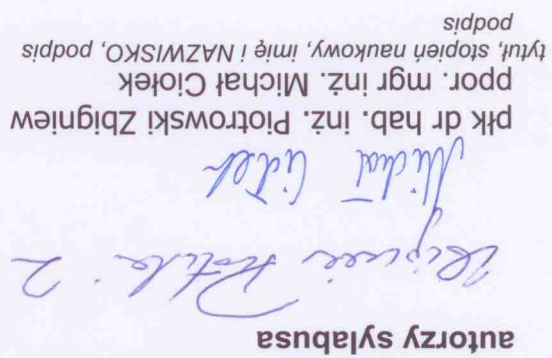 autorzy sylabusa
Michał Ciołek
płk dr hab. inż. Piotrowski Zbigniew
ppor. mgr inż. Michał Ciołek
tytuł, stopień naukowy, imię i NAZWISKO, podpis
podpis